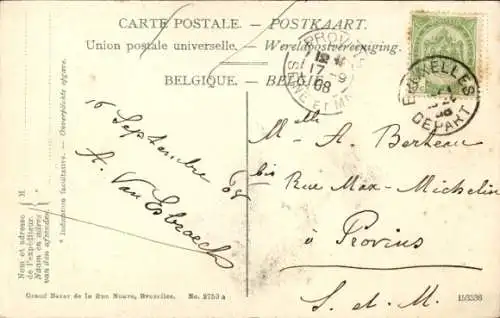 CARTE POSTALE. - POSTKAART.
Union postale universelle. - Wereldpostvereeniging.
BELGIQUE. - BELGIË.
PROVINS
17-9
08
SEINE ET MNE
BRUXELLES
DÉPART
16 Septembre 08
A. Van Esbroeck
Melle A. Berteau
bis Rue Max-Michelin
à Provins
S. et M.
M
Nom et adresse
de l'expéditeur.
Naam en adres
van den afzender.
* Indication facultative. - Onverplichte opgave.
Grand Bazar de la Rue Neuve, Bruxelles. No. 2753 a
153336